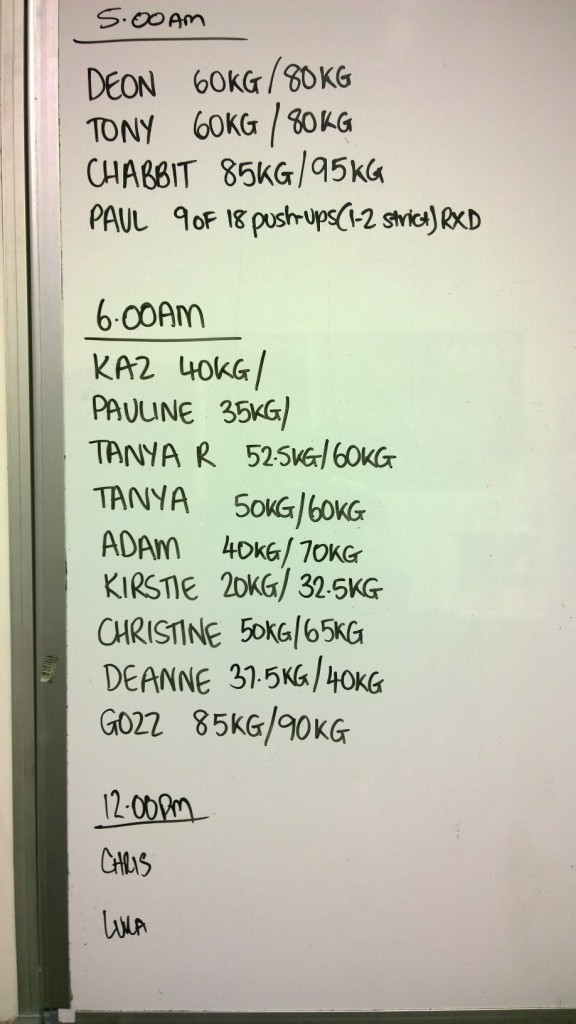 5.00AM
DEON 60KG/80KG
TONY 60KG/80KG
CHABBIT 85KG/95KG
PAUL 9 OF 18 push-ups(1-2 strict) RXD
6.00AM
KAZ 40KG/
PAULINE 35KG/
TANYA R 52.5KG/60KG
TANYA 50KG/60KG
ADAM 40KG/70KG
KIRSTIE 20KG/32.5KG
CHRISTINE 50KG/65KG
DEANNE 37.5KG/40KG
GOZZ 85KG/90KG
12.00PM
CHRIS
LUKA